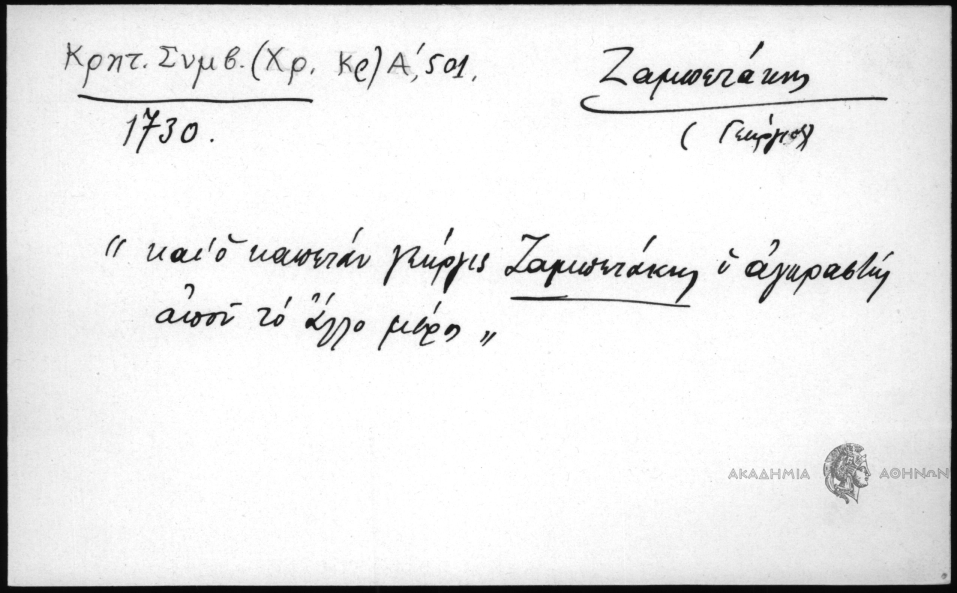 Κρητ. Συμβ. (Χρ. Κρ) Α΄, 501.
Ζαμπετάκης
1730.
(Γεώργιος)
“ καί ὁ καπετάν γεώργις Ζαμπετάκης ὁ ἀγοραστής
ἀποῦ τό ἄλλο μέρος „
ΑΚΑΔΗΜΙΑ ΑΘΗΝΩΝ